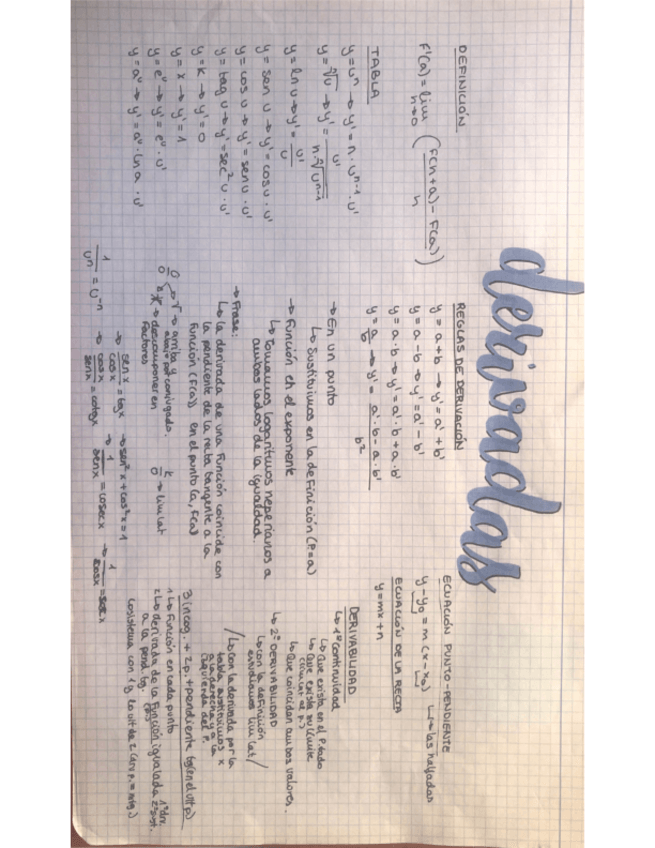 derivadas
DEFINICIÓN
F'(a) = lim h→0 (F(h+a) - F(a) / h)
TABLA
y = uⁿ → y' = n · uⁿ⁻¹ · u'
y = ⁿ√u → y' = u' / n · ⁿ√uⁿ⁻¹
y = ln u → y' = u' / u
y = sen u → y' = cos u · u'
y = cos u → y' = sen u · u'
y = tag u → y' = sec² u · u'
y = k → y' = 0
y = x → y' = 1
y = eᵘ → y' = eᵘ · u'
y = aᵘ → y' = aᵘ · ln a · u'
REGLAS DE DERIVACIÓN
y = a+b → y' = a' + b'
y = a-b → y' = a' - b'
y = a·b → y' = a'·b + a·b'
y = a/b → y' = a'·b - a·b' / b²
→ En un punto
↳ Sustituimos en la definición (P=a)
→ Función en el exponente
↳ Tomamos logaritmos neperianos a
ambos lados de la igualdad.
→ Frase:
↳ la derivada de una función coincide con
la pendiente de la recta tangente a la
función (F(a)) en el punto (a, F(a))
0/0 → √ → arriba y
abajo por conjugado.
→ descomponer en
factores
k/0 → lim lat
1/uⁿ = u⁻ⁿ
→ sen x / cos x = tg x → sen²x + cos²x = 1
→ cos x / sen x = cotg x → 1 / sen x = cosec x → 1 / cos x = sec x
ECUACIÓN PUNTO-PENDIENTE
y - y₀ = m (x - x₀) → las halladas
ECUACIÓN DE LA RECTA
y = mx + n
DERIVABILIDAD
↳ 1º Continuidad
↳ Que exista en el p. dado
↳ Que exista su límite
(lim lat al p.)
↳ Que coincidan ambos valores.
↳ 2º DERIVABILIDAD
↳ con la definición
estudiamos lim lat /
/ ↳ con la derivada por la
tabla sustituimos x
a la derecha y a la
izquierda del P.
3 incog. + 2p. + pendiente tg (en el ult p)
1 ↳ Función en cada punto
2 ↳ derivada de la función igualada
a la pend. tg.
1º drv.
2º sust.